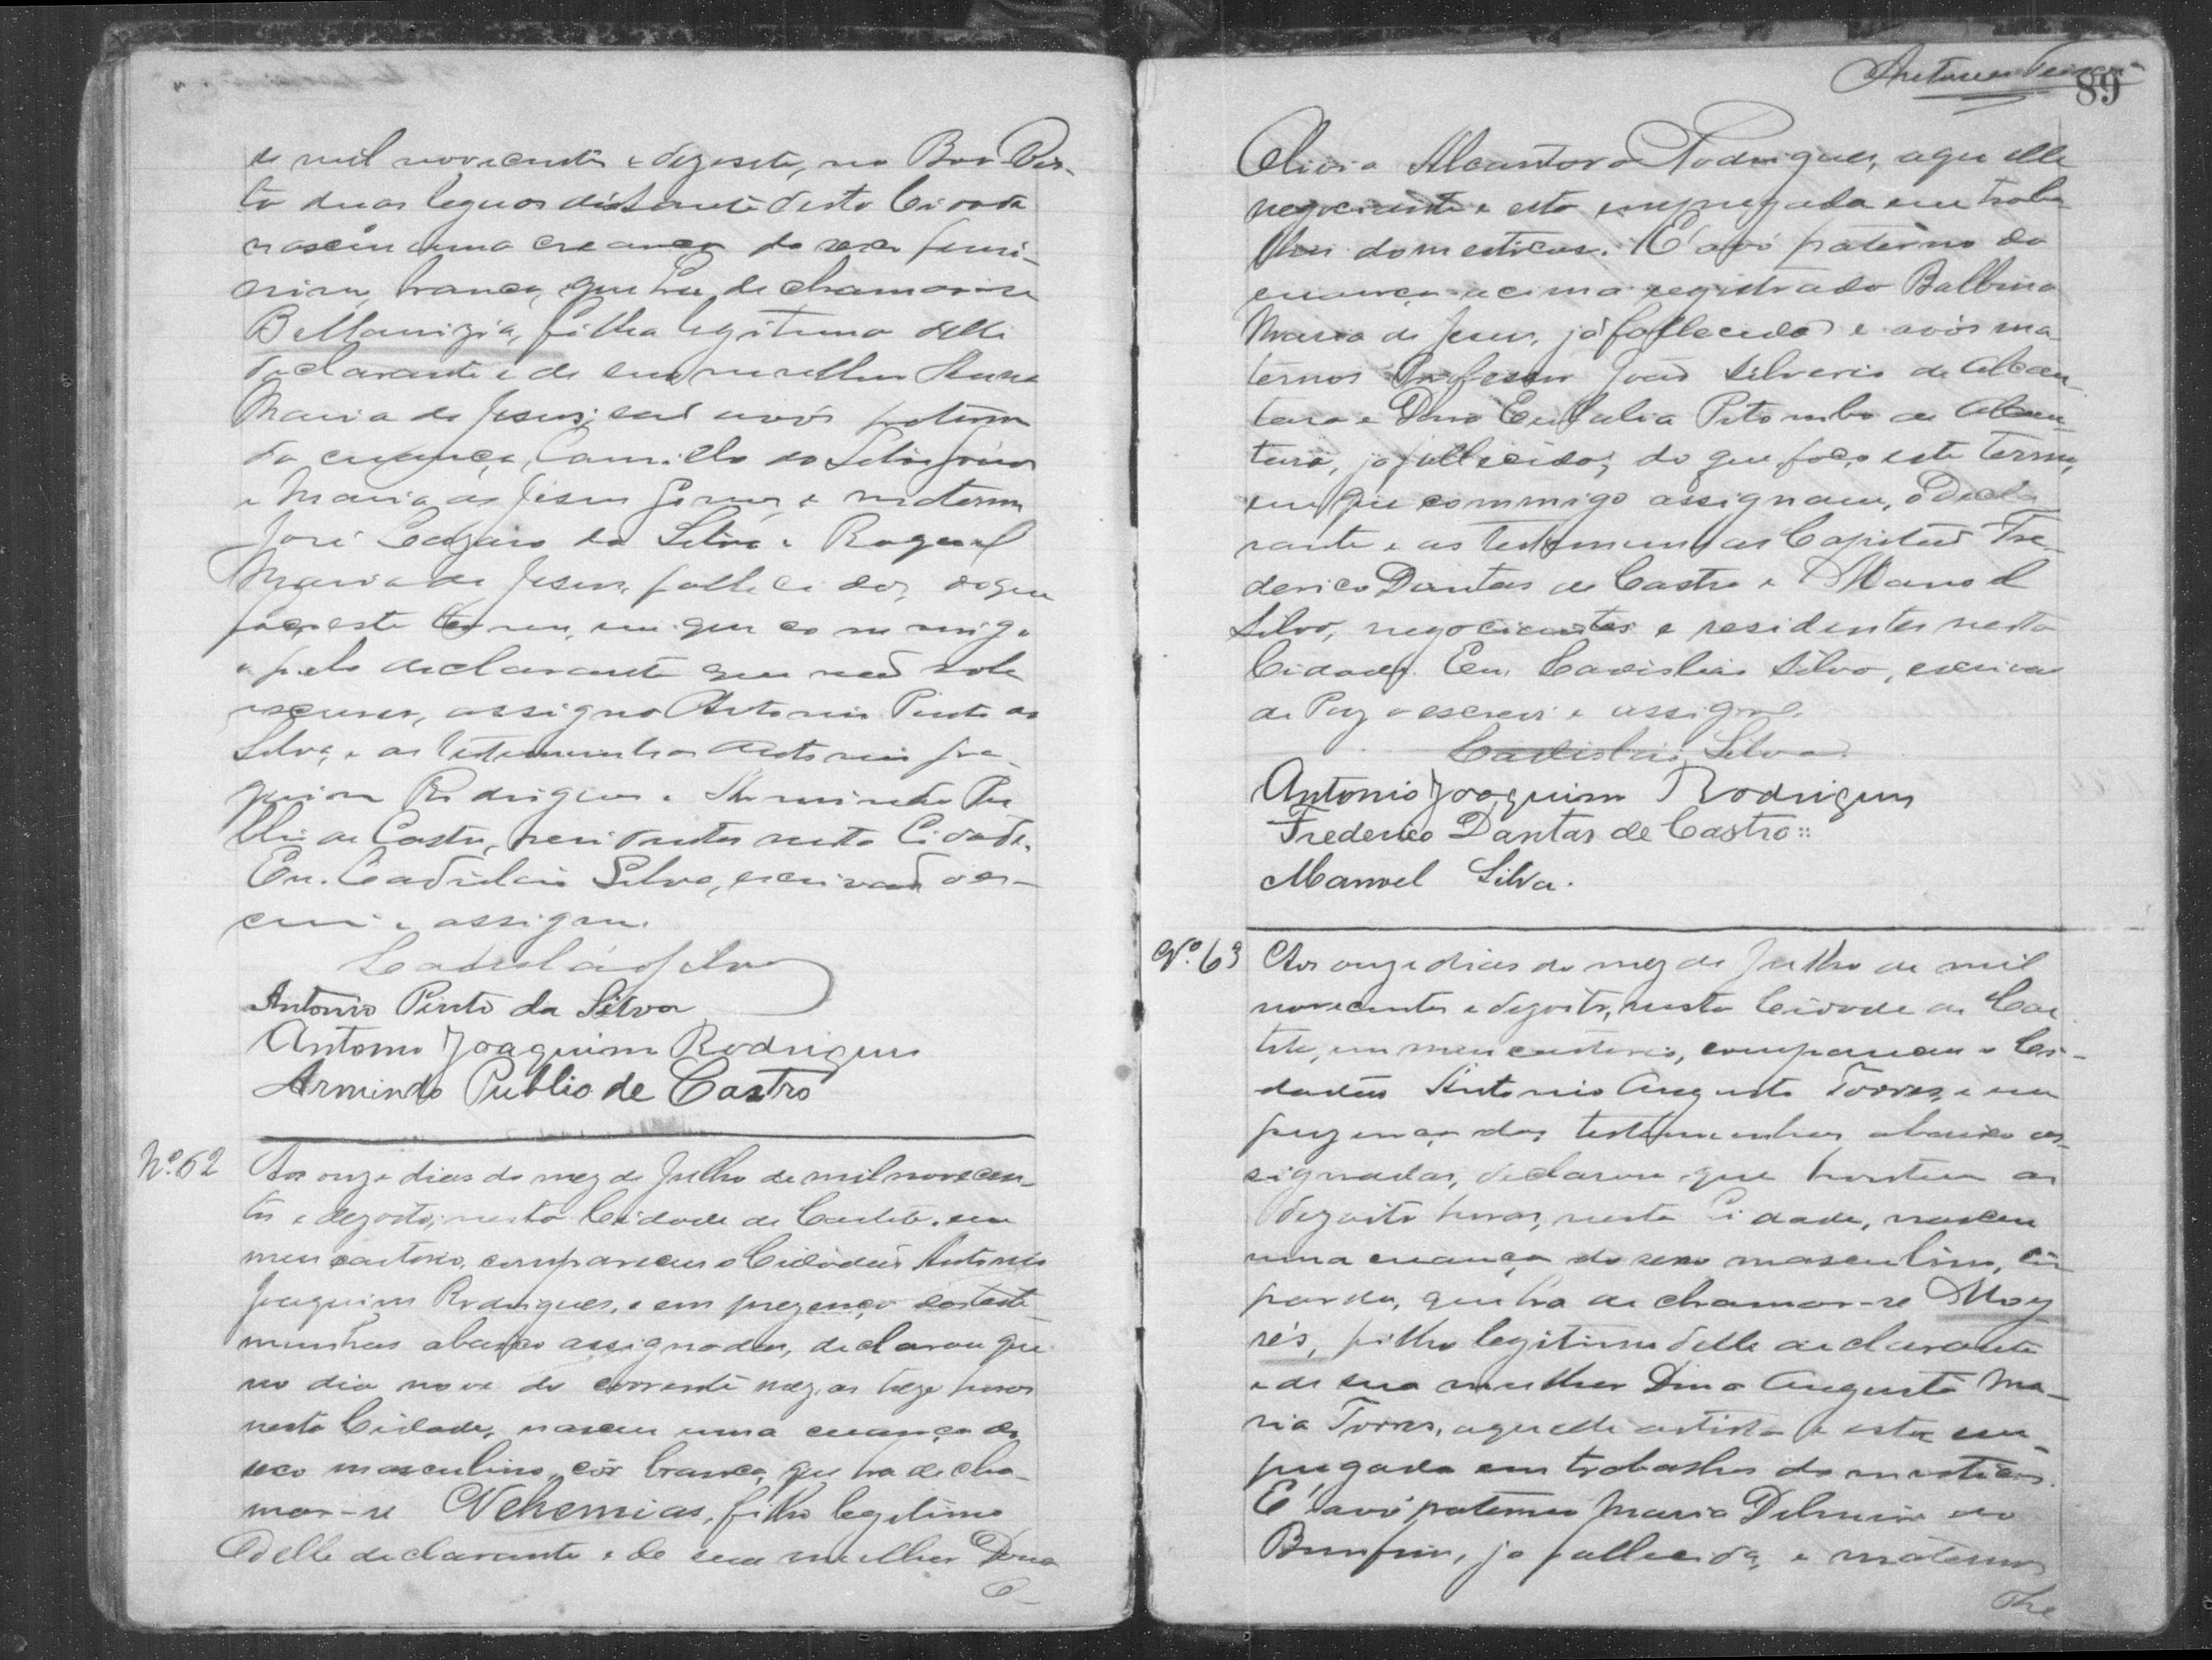 de mil novecentos e dezesete, no Boa Vis-
ta duas leguas distante desta Cidade
nasceu uma creança do sexo femi-
nino, branca, que ha de chamar-se
Bellanizia, filha legitima delle
declarante e de sua mulher Anna
Maria de Jesus; são avós paternos
da creança, Camillo da Silva
e Maria de Jesus e maternos
José Lazaro da Silva e Raquel
Maria de Jesus, fallecidos, do que
faço este termo, em que commigo
e pelo declarante que não sabe
escrever, assigna Antonio Pinto da
Silva, e as testemunhas Antonio Joa-
quim Rodrigues e Armindo Pu-
blio de Castro, residentes nesta Cidade.
Eu. Ladislau Silva, escrivão o es-
crevi e assigno.
Ladislau Silva
Antonio Pinto da Silva
Antonio Joaquim Rodrigues
Armindo Publio de Castro
Nº. 62 Aos onze dias do mez de Julho de mil novecen-
tos e dezoito, nesta Cidade de Caeteté, em
meu cartorio, compareceu o Cidadão Antonio
Joaquim Rodrigues, e em prezença das teste-
munhas abaixo assignadas, declarou que
no dia nove do corrente mez, as treze horas
nesta Cidade, nasceu uma creança do
sexo masculino, côr branca, que ha de cha-
mar-se Nehemias, filho legitimo
delle declarante e de sua mulher Dona
O-
89
Olivia Alcantara Rodrigues, aquelle
negociante e esta empregada em traba-
lhos domesticos. É avó paterno da
creança acima registrado Balbina
Maria de Jesus, já fallecida e avós ma-
ternos Professor João Silverio de Alcan-
tara e Dona Eufalia Pitombo de Alcan-
tara, já fallecidos, do que faço este termo,
em que commigo assignam, o Decla-
rante e as testemunhas Capitão Fre-
derico Dantas de Castro e Manoel
Silva, negociantes e residentes nesta
Cidade. Eu. Ladislau Silva, escrivão
de Paz o escrevi e assigno.
Ladislau Silva
Antonio Joaquim Rodrigues
Frederico Dantas de Castro::
Manoel Silva.
Nº. 63 Aos onze dias do mez de Julho de mil
novecentos e dezoito, nesta Cidade de Cae-
teté, em meu cartorio, compareceu o Ci-
dadão Antonio Augusto Torres, e em
prezença das testemunhas abaixo as-
signadas, declarou que hontem as
dezoito horas, nesta Cidade, nasceu
uma creança do sexo masculino, côr
parda, que ha de chamar-se Moy-
sés, filho legitimo delle declarante
e de sua mulher Dona Augusta Ma-
ria Torres, aquelle artista e esta em-
pregada em trabalhos domesticos.
É avó paterno Maria
Bomfim, já fallecida, e maternos
The